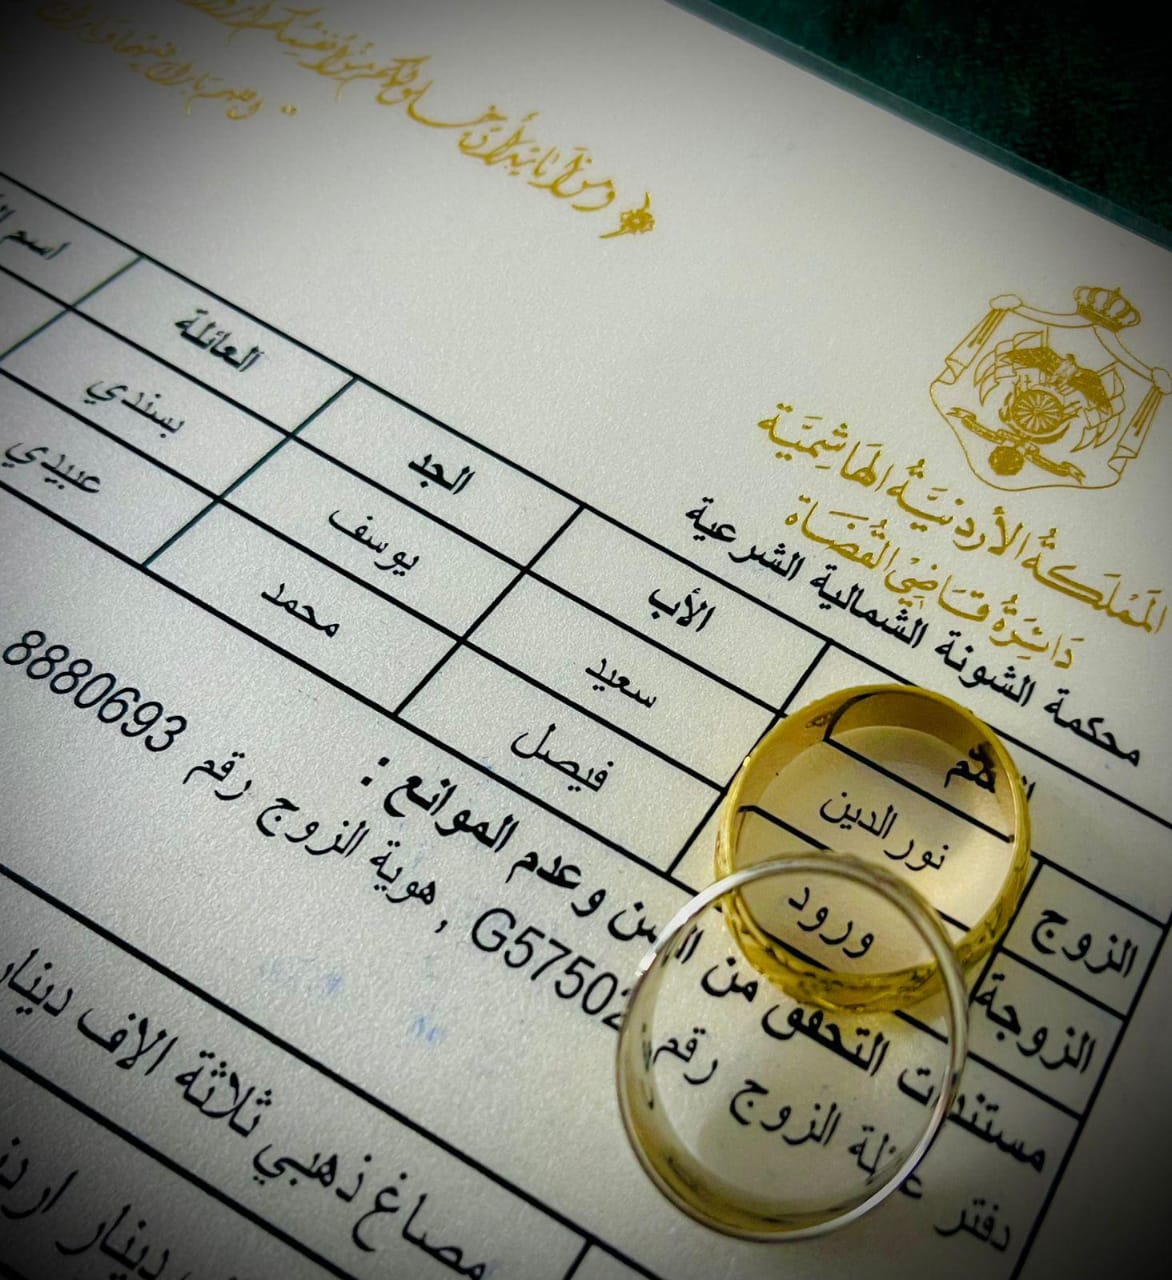 ومن آياته أن خلق لكم من أنفسكم أزو
المملكة الأردنية الهاشمية
دائرة قاضي القضاة
محكمة الشونة الشمالية الشرعية
الأب الجد العائلة اسم
الزوج نور الدين سعيد يوسف بسندي
الزوجة ورود فيصل محمد عبيدي
مستندات التحقق من السن وعدم الموانع :
دفتر عائلة الزوج رقم G57502 , هوية الزوج رقم 8880693
مصاغ ذهبي ثلاثة الاف دينار
دينار